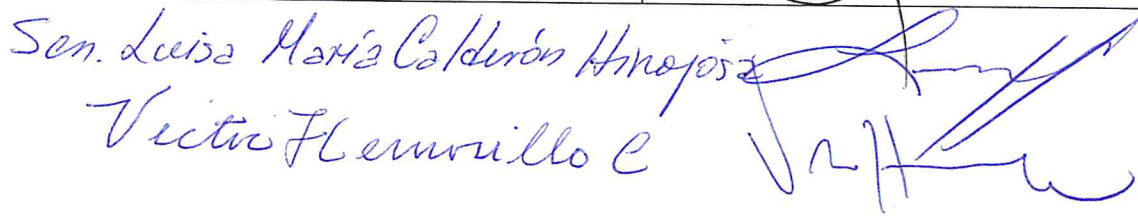 Sen. Luisa María Calderón Hinojosa
Victor Hermosillo C